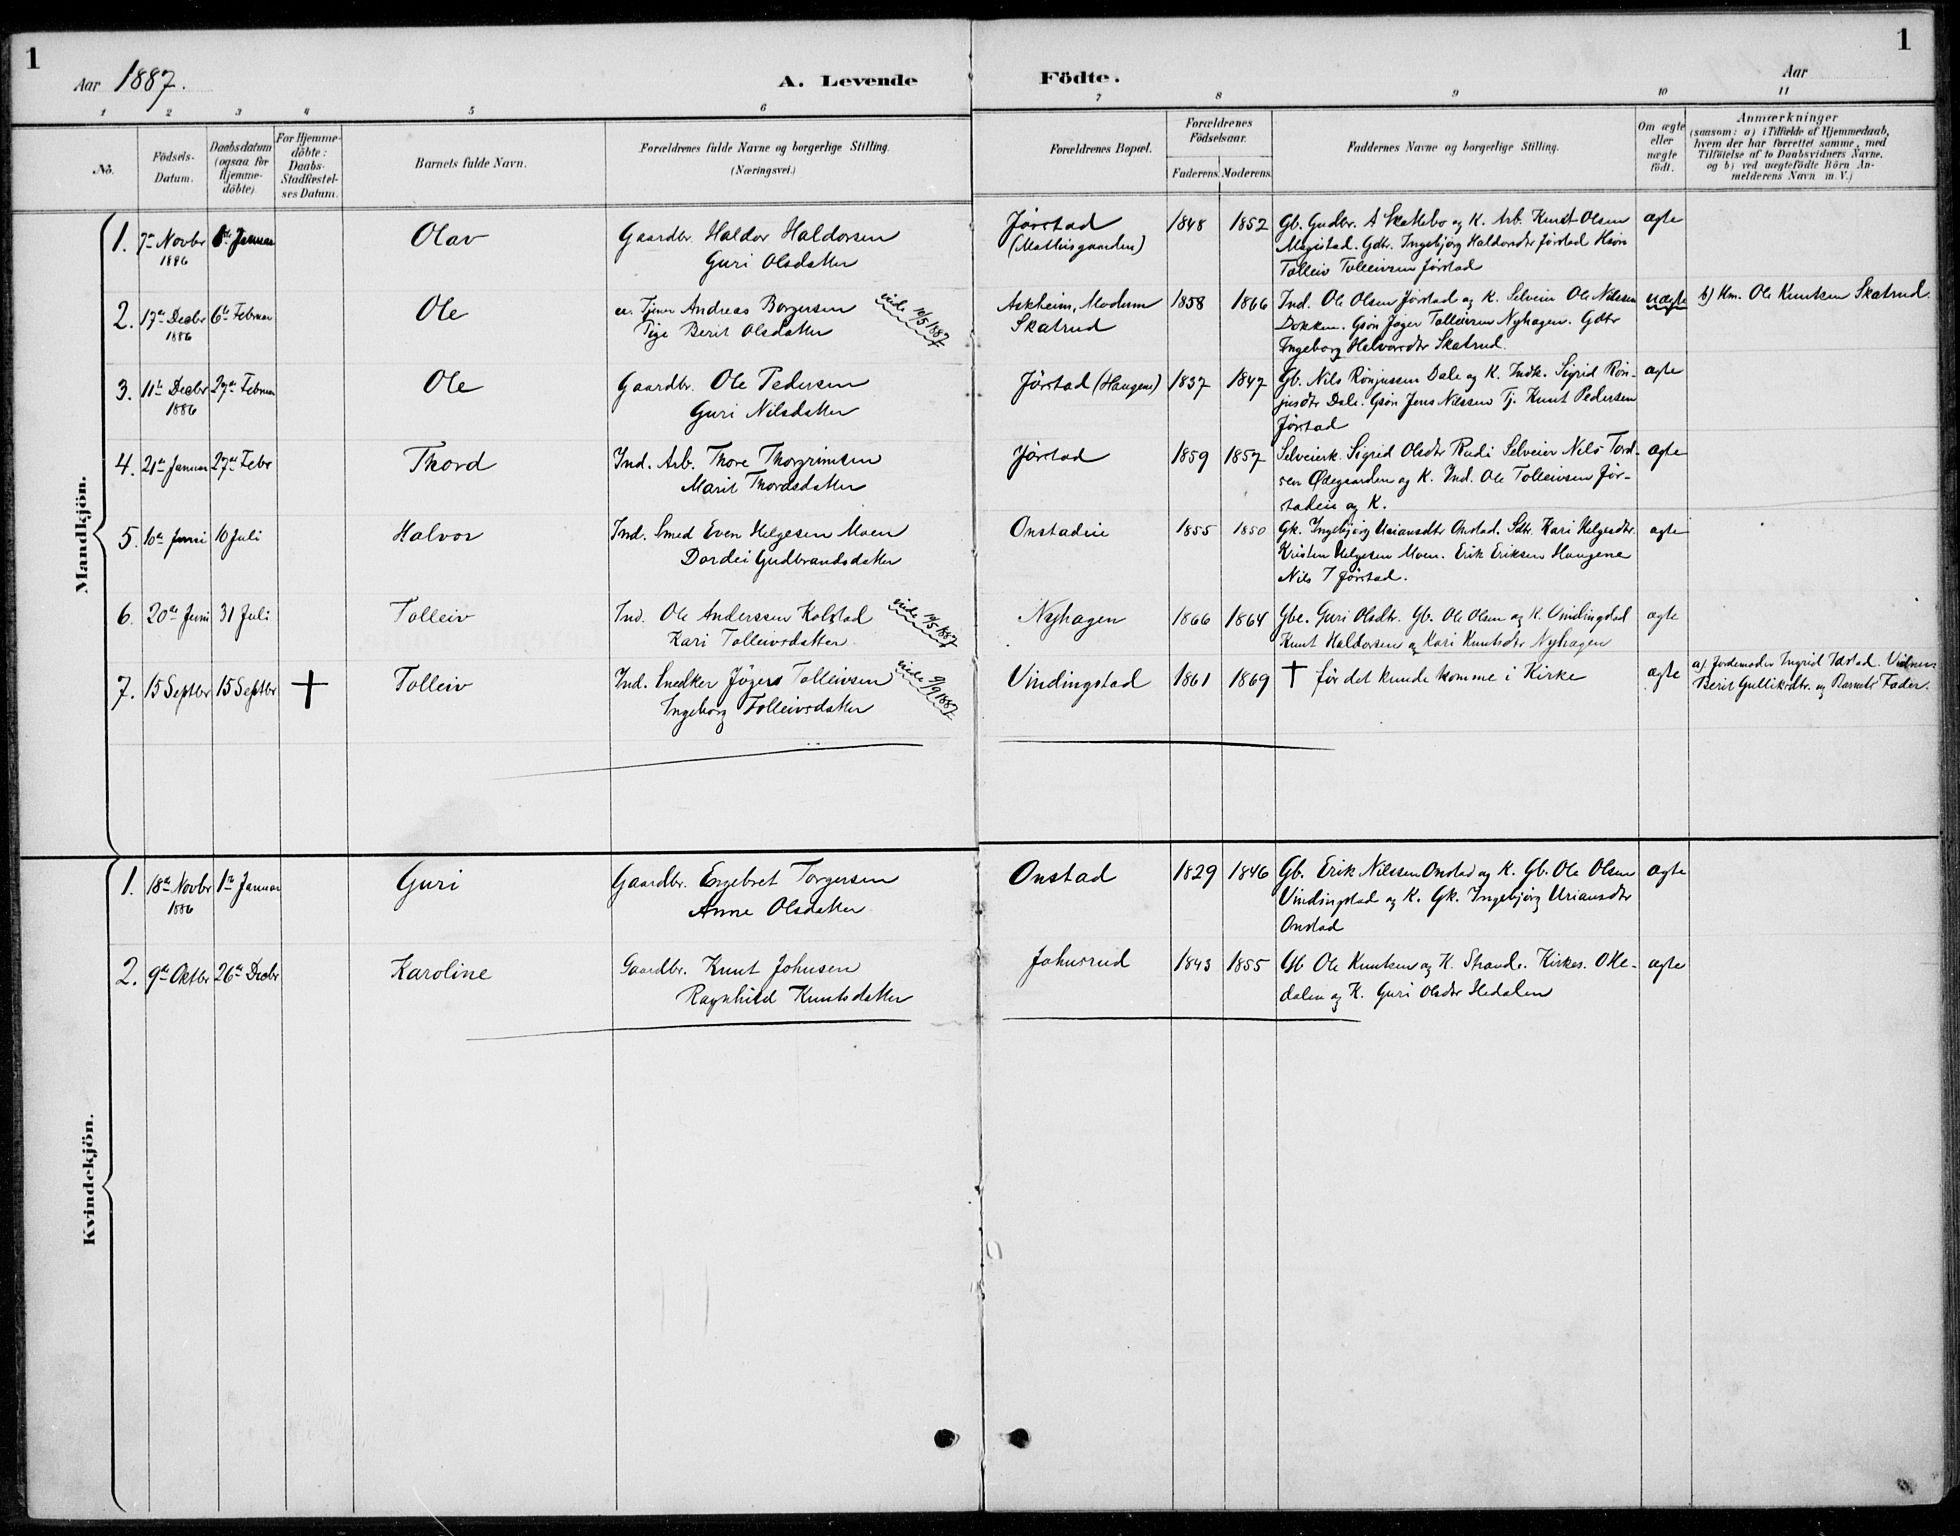 1
1
Aar 1887.
A. Levende Födte.
Aar
1 2 3 4 5 6 7 8 9 10 11
No.
Födsels-
Datum.
Daabsdatum
(ogsaa for
Hjemme-
döbte)
For Hjemme-
döbte:
Daabs-
Stadfæstel-
ses Datum.
Barnets fulde Navn.
Forældrenes fulde Navne og borgerlige Stilling.
(Næringsvei.)
Forældrenes Bopæl.
Forældrenes
Födselsaar.
Faderens. Moderens.
Faddernes Navne og borgerlige Stilling.
Om ægte
eller
uægte
födt.
Anmærkninger
(saasom: a) i Tilfælde af Hjemmedaab,
hvem der har forrettet samme, med
Tilföielse af to Daabsvidners Navne.
og b) ved uægtefödte Börn An-
melderens Navn m. V.)
Mandkjön.
1. 7de Novbr 1886 Januar Olav
Gaardbr. Haldor Haldorsen
Guri Olsdatter
Jørstad
1848 1852
Gb. Gudbr. A Skattebo og K. Arb. Knud Olsen
Megistad. Gdtr. Ingebjörg Haldorsdtr Jørstad
Tolleiv Tolleivsen Jørstad
ægte
2. 17de Decbr 1886 6te Februar Ole
Tjener Andreas Borgersen
Pige Berit Olsdatter
inde 10/5 1887
Askheim, Modum
Skatrud
1858 1866
Ind. Ole Olsen Jørstad og K. Selveier Ole Nilssen
Dokken. Gsön Jøger Tolleivsen Nyhagen. Gdtr
Ingeborg Halvorsdtr Skatrud.
uægte
b) Hm. Ole Knutsen Skatrud.
3. 11te Decbr 1886 27de Februar Ole
Gaardbr. Ole Pedersen
Guri Nilsdatter
Jørstad (Haugene)
1837 1847
Gb. Nils Rønjussen Dale og K. Indk. Sigrid Røn-
jusdtr Dale. Gsön Jens Nilssen Tj. Knut Pedersen
Jørstad
ægte
4. 21de Januar 27de Febr Thord
Ind. Arb. Thore Thorgrimsen
Marit Thordsdatter
Jørstad
1859 1857
Selveierk. Sigrid Olsdtr Rudi Selveier Nils Tord-
sen Ødegaarden og K. Ind. Ole Tolleivsen Jør-
stadeie og K.
ægte
5. 10de Juni 10 Juli Halvor
Ind. Smed Even Helgesen Moen
Dordei Gudbrandsdatter
Onstadeie
1855 1850
Gk. Ingebjörg Uriansdtr Onstad. Sdtr. Kari Helgesdtr.
Kristen Helgesen Moen. Erik Eriksen Haugene
Nils T Jørstad.
ægte
6. 20de Juni 31 Juli Tolleiv
Ind. Ole Anderssen Kolstad
Kari Tolleivsdatter
inde 10/5 1887
Nyhagen
1866 1864
Gbe. Guri Olsdtr. Gb. Ole Olsen og K. Vindingstad
Knut Haldorsen og Kari Knutsdtr Nyhagen
ægte
7. 15 Septbr 15 Septbr † Tolleiv
Ind. Snedker Jøgers Tolleivsen
Ingeborg Tolleivsdatter
inde 9/9 1887
Vindingstad
1861 1869
† før det kunde komme i Kirke
ægte
a) Jordemoder Ingrid Idstad. Vidner
Berit Gulliksdtr. og Barnets Fader.
Kvindekjön.
1. 18de Novbr 1886 1ste Januar Guri
Gaardbr. Engebret Torgersen
Anne Olsdatter
Onstad
1829 1846
Gb. Erik Nilssen Onstad og K. Gb. Ole Olsen
Vindingstad og K. Gk. Ingebjörg Uriansdtr
Onstad
ægte
2. 9de Oktbr 26de Decbr Karoline
Gaardbr. Knut Johnsen
Ragnhild Knutsdatter
Johnsrud
1843 1855
Gb Ole Knutsen og K. Strande. Kirkes. O He-
dalen og K. Guri Olsdtr Hedalen
ægte